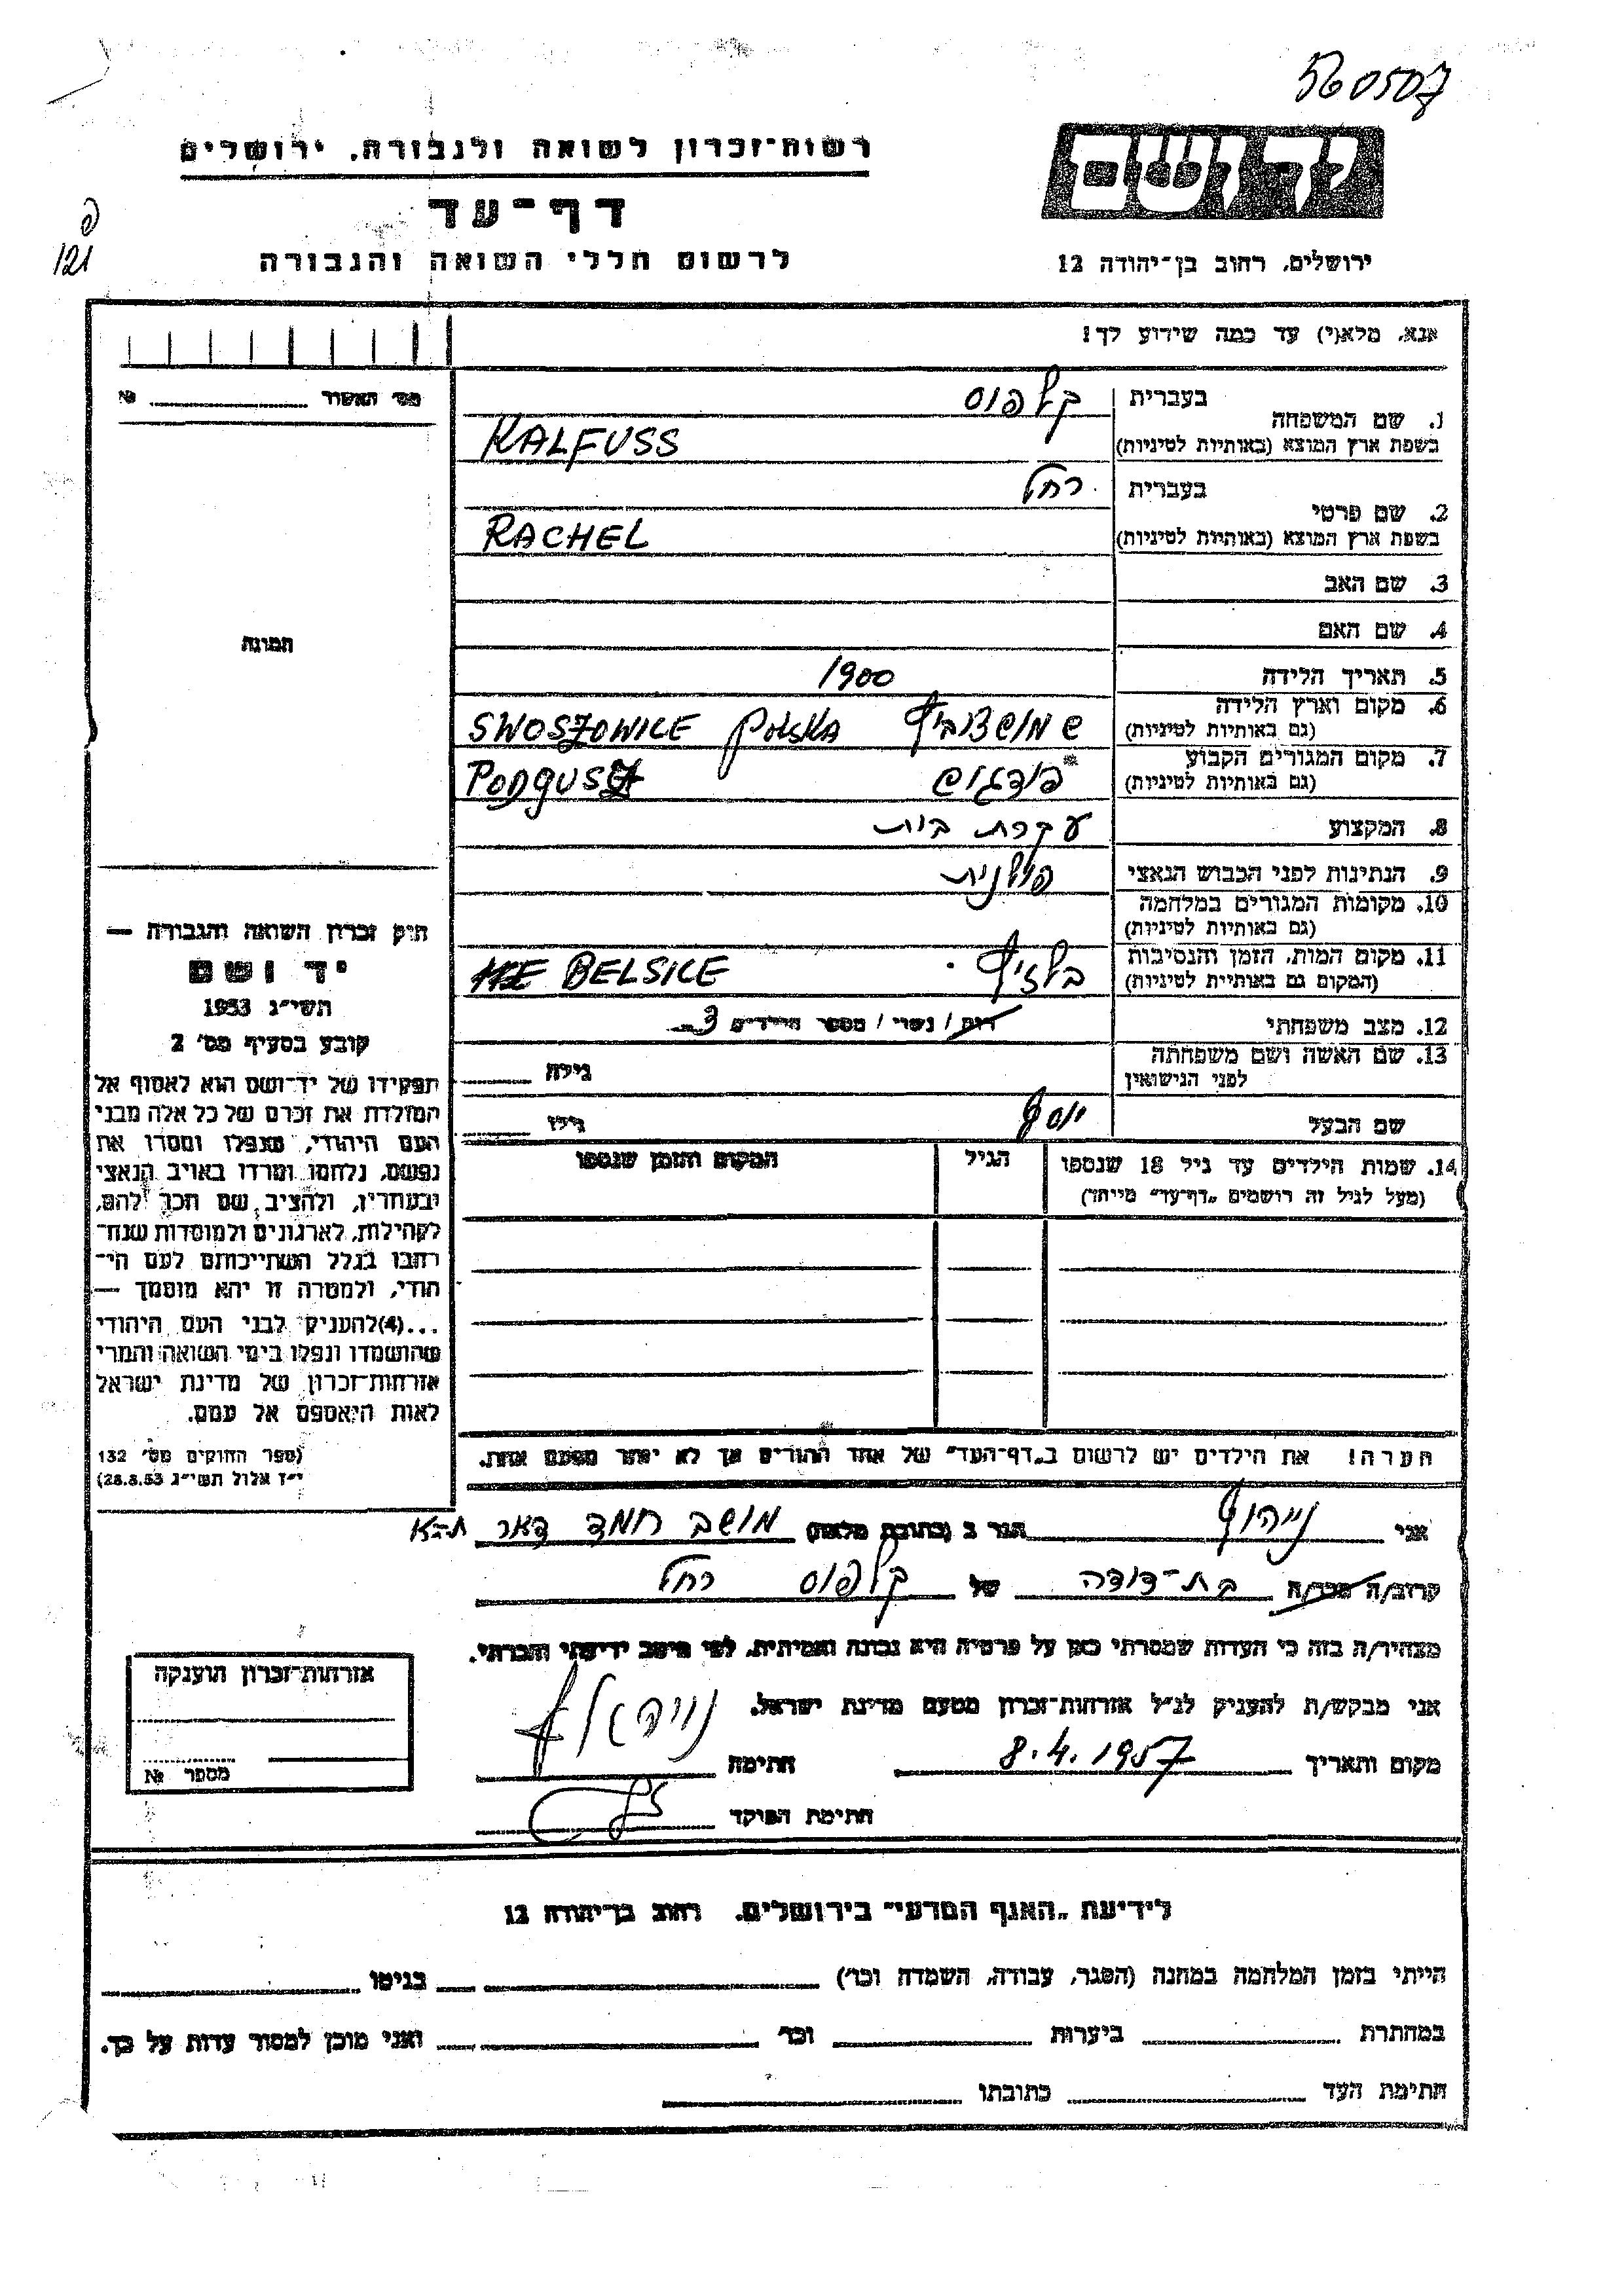 560507
יד ושם
רשות-זכרון לשואה ולגבורה. ירושלים
דף-עד
לרשום חללי השואה והגבורה
ירושלים, רחוב בן-יהודה 12
פ
121
אנא, מלא(י) עד כמה שידוע לך!
מס' האשור № 
1. שם המשפחה
בעברית קלפוס
בשפת ארץ המוצא (באותיות לטיניות) KALFUSS
2. שם פרטי
בעברית רחל
בשפת ארץ המוצא (באותיות לטיניות) RACHEL
3. שם האב
4. שם האם
5. תאריך הלידה 1900
6. מקום וארץ הלידה
(גם באותיות לטיניות) SWOSZOWICE POLSKA
7. מקום המגורים הקבוע
(גם באותיות לטיניות) פודגוש
8. המקצוע עקרת בית
9. הנתינות לפני הכבוש הנאצי פולנית
10. מקומות המגורים במלחמה
(גם באותיות לטיניות)
11. מקום המות, הזמן והנסיבות
(המקום גם באותיות לטיניות) BELSICE
12. מצב משפחתי רווק / נשוי / מספר הילדים 3
13. שם האשה ושם משפחתה
לפני הנישואין גילה
שם הבעל יוסף גילו
14. שמות הילדים עד גיל 18 שנספו הגיל המקום והזמן שנספו
(מעל לגיל זה רושמים „דף-עד" מיוחד)
הערה! את הילדים יש לרשום ב„דף-העד" של אחד ההורים אך לא יותר מפעם אחת.
תמונה
חוק זכרון השואה והגבורה —
יד ושם
תשי"ג 1953
קובע בסעיף מס' 2
תפקידו של יד-ושם הוא לאסוף אל
המולדת את זכרם של כל אלה מבני
העם היהודי, שנפלו ומסרו את
נפשם, נלחמו ומרדו באויב הנאצי
ובעוזריו, ולהציב שם וזכר להם,
לקהילות, לארגונים ולמוסדות שנח-
רבו בגלל השתייכותם לעם הי-
הודי, ולמטרה זו יהא מוסמך —
...(4) להעניק לבני העם היהודי
שהושמדו ונפלו בימי השואה והמרי
אזרחות-זכרון של מדינת ישראל
לאות היאספם אל עמם.
(ספר החוקים מס' 132
י"ז אלול תשי"ג 28.8.53)
אני נייהוף הגר ב (כתובת מלאה) מושב חמד דאר ת-א
קרוב/ה מכר/ה בת-דודה של קלפוס רחל
מצהיר/ה בזה כי העדות שמסרתי כאן על פרטיה היא נכונה ואמיתית, לפי מיטב ידיעתי והכרתי.
אני מבקש/ת להעניק לנ"ל אזרחות-זכרון מטעם מדינת ישראל.
מקום ותאריך 8.4.1957 חתימה
חתימת הפוקד
אזרחות-זכרון הוענקה
מספר №
לידיעת „האגף המדעי" בירושלים. רחוב בן-יהודה 12
הייתי בזמן המלחמה במחנה (הסגר, עבודה, השמדה וכו') בגיטו
במחתרת ביערות וכו' ואני מוכן למסור עדות על כך.
חתימת העד כתובתו